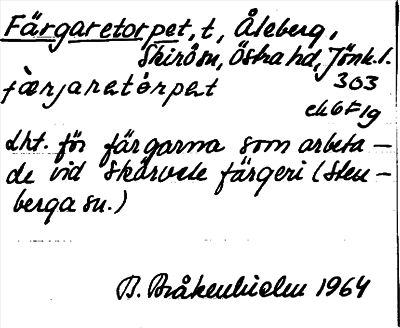 Färgaretorpet, t, Åleberg,
Skirösn, Östra hd, Jönk.l.
færjaretórpet 303
ek 6F 1g
Lht. för färgarna som arbeta-
de vid Skärvete färgeri (Sten-
berga sn.)
B. Bråkenhielm 1964